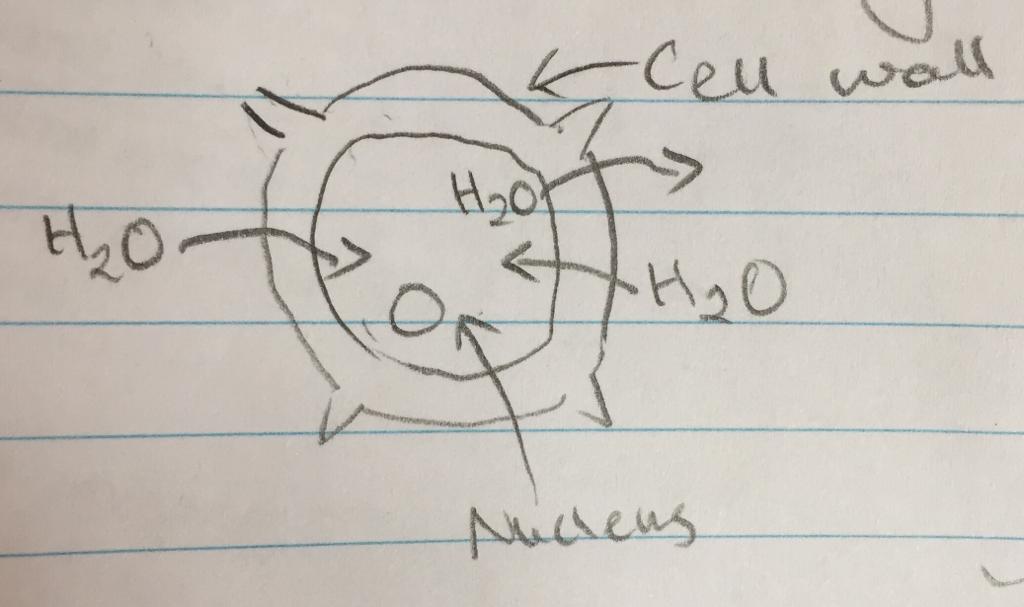 Cell wall
H₂O
H₂O
H₂O
Nucleus